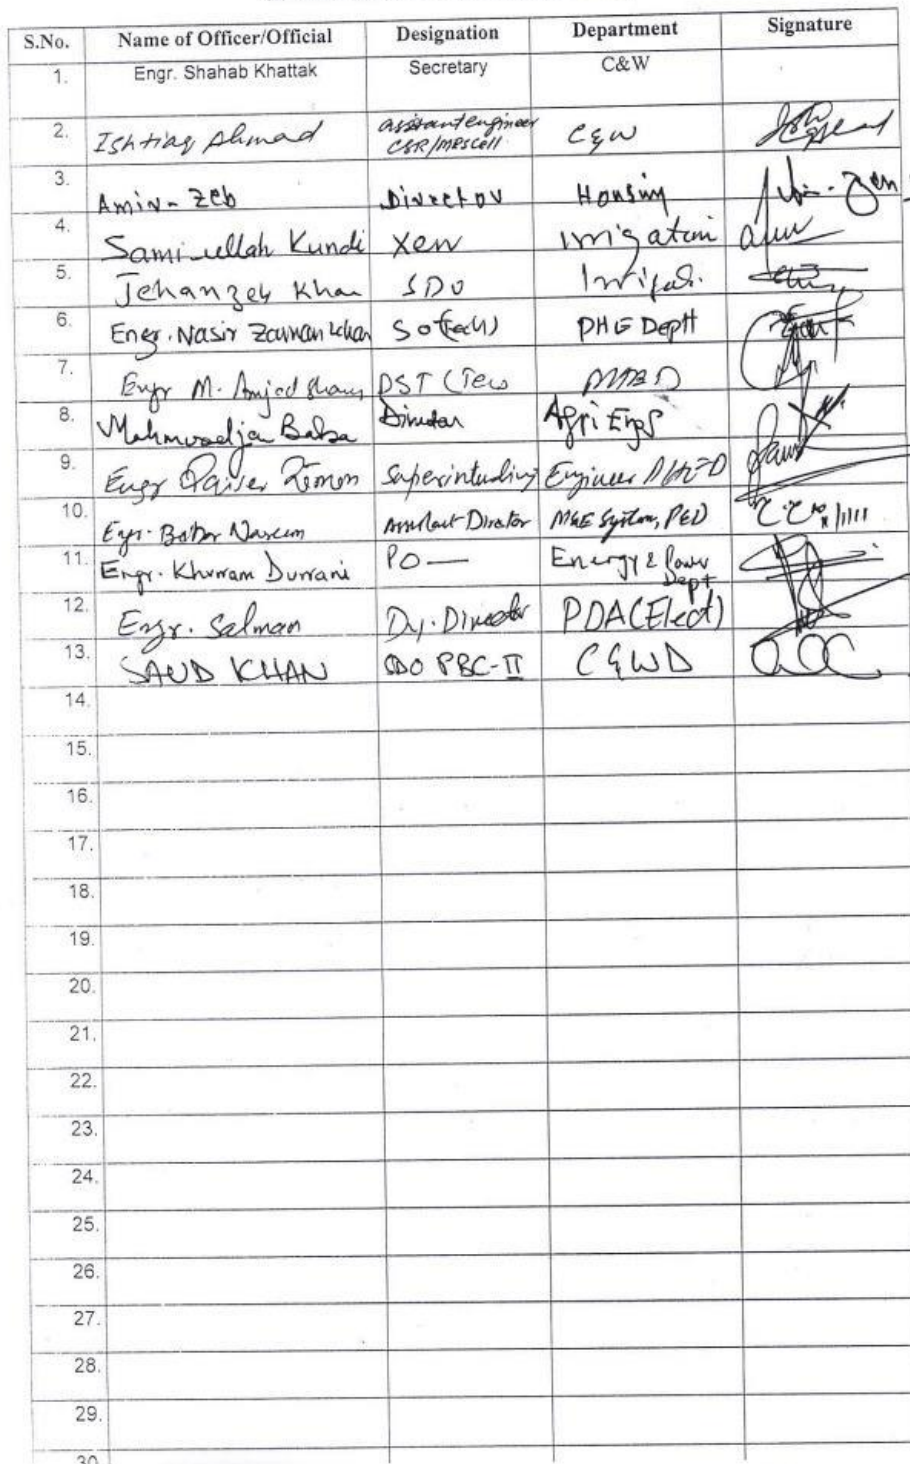 S.No. Name of Officer/Official Designation Department Signature
1. Engr. Shahab Khattak Secretary C&W
2. Ishtiaq Ahmad assistant engineer C&W
CSR/MRS Cell
3. Amir-Zeb Director Housing
4. Sami-ullah Kundi Xen Irrigation
5. Jehanzeb Khan SDO
6. Engr. Nasir Zaman Khan SO(Tech) PHE Deptt
7. Engr M. Amjad
8. Mahmood Jan Baba Director Agri Engg
9. Engr Qaiser Zaman Superintending Engineer
10. Engr. Babar Naeem Assistant Director M&E System, PED
11. Engr. Khurram Durrani PO — Energy & Power
Dept
12. Engr. Salman Dy. Director PDA (Elect)
13. SAUD KHAN SDO PBC-II C&WD
14.
15.
16.
17.
18.
19.
20.
21.
22.
23.
24.
25.
26.
27.
28.
29.
30